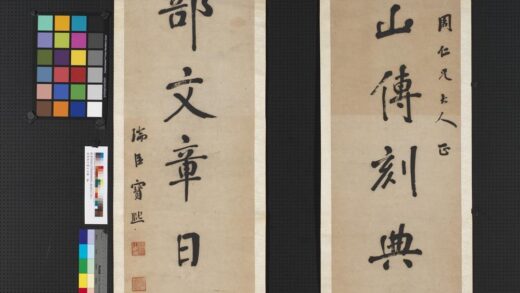 周仁兄大人正
山傳刻典
部文章日
瑞臣寶熙